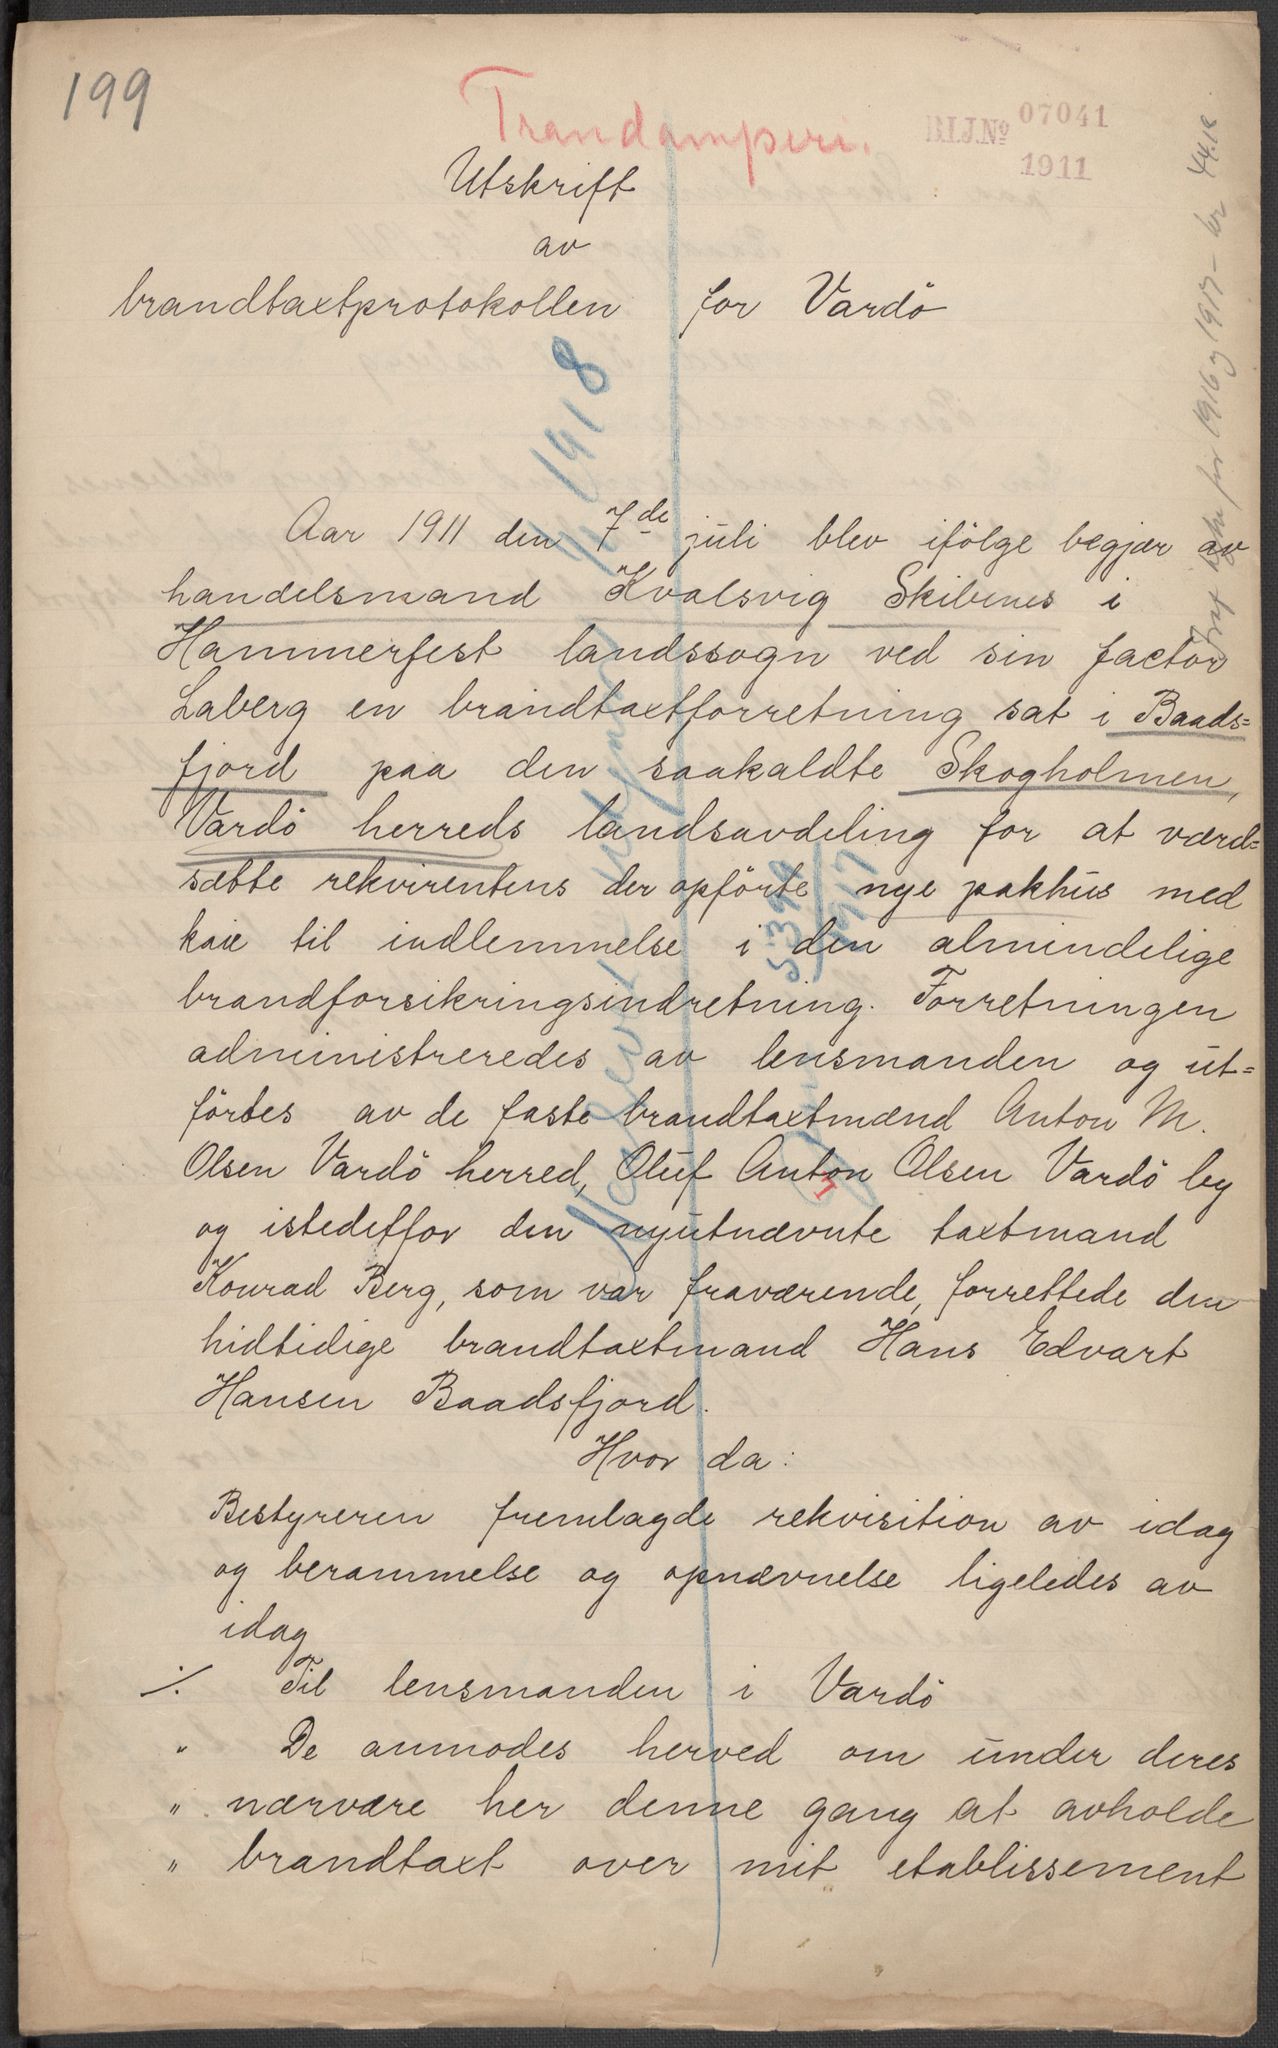 199
Trandamperi.
BIJ.No 07041
1911
Utskrift
av
brandtaxtprotokollen for Vardö
1918
Aar 1911 den 7de juli blev ifölge begjær av
handelsmand Kvalsvig Skibenes i
Hammerfest landssogn ved sin factor
Laberg en brandtaxtforretning sat i Baads=
fjord paa den saakaldte Skogholmen,
Vardö herreds landsavdeling for at værd=
sætte rekvirentens der opförte nye pakhus med
kaie til indlemmelse i den almindelige
brandforsikringsindretning. Forretningen
administreredes av lensmanden og ut=
förtes av de faste brandtaxtmænd Anton M.
Olsen Vardö herred, Oluf Anton Olsen Vardö by
og istedetfor den nyutnævnte taxtmand
Konrad Berg, som var fraværende, forrettede den
hidtidige brandtaxtmand Hans Edvart
Hansen Baadsfjord.
Hvor da:
Bestyreren fremlagde rekvisition av idag
og berammelse og opnævnelse ligeledes av
idag
./. Til lensmanden i Vardö
" De anmodes herved om under deres
" nærvære her denne gang at avholde
" brandtaxt over mit etablissement
for 1916 og 1917 - kr 44.18
1917